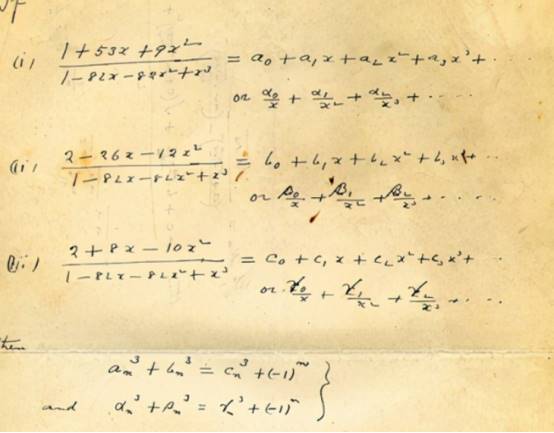 (i) (1 + 53x + 9x²)/(1 - 82x - 82x² + x³) = a₀ + a₁x + a₂x² + a₃x³ + ....
or α₀/x + α₁/x² + α₂/x³ + ....
(ii) (2 - 26x - 12x²)/(1 - 82x - 82x² + x³) = b₀ + b₁x + b₂x² + b₃x³ + ..
or β₀/x + β₁/x² + β₂/x³ + .....
(iii) (2 + 8x - 10x²)/(1 - 82x - 82x² + x³) = c₀ + c₁x + c₂x² + c₃x³ + ..
or γ₀/x + γ₁/x² + γ₂/x³ + ....
then
aₙ³ + bₙ³ = cₙ³ + (-1)ⁿ }
and αₙ³ + βₙ³ = γₙ³ + (-1)ⁿ